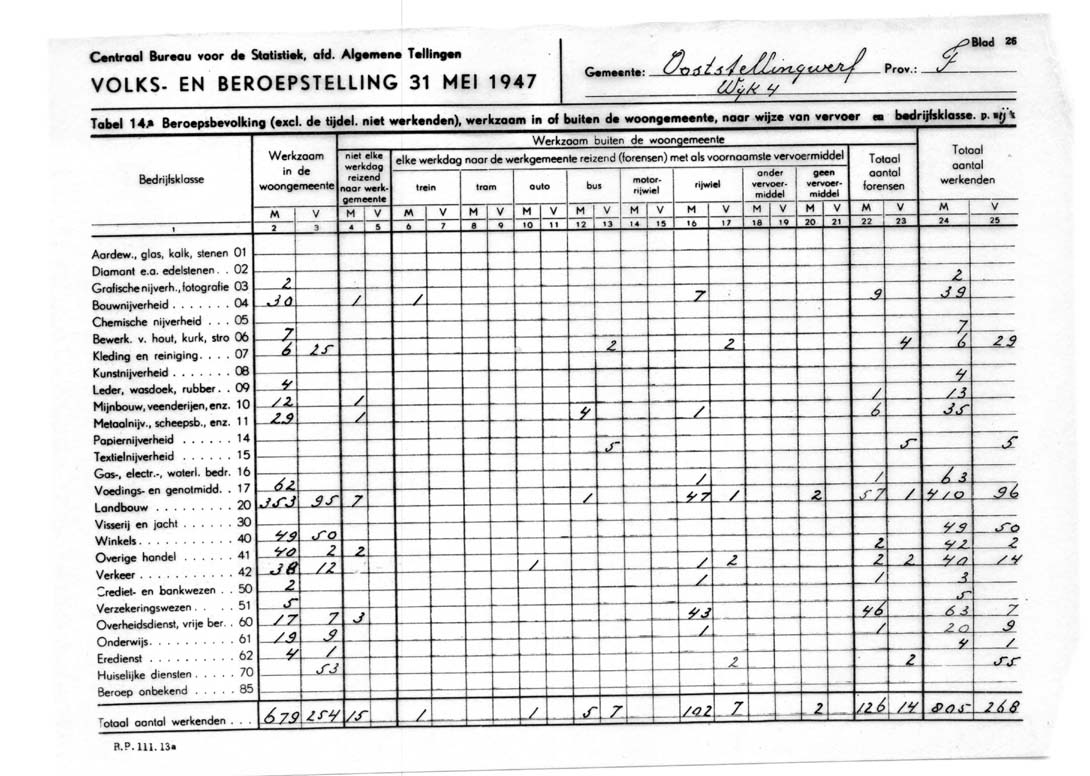 Blad 26
Centraal Bureau voor de Statistiek, afd. Algemene Tellingen
VOLKS- EN BEROEPSTELLING 31 MEI 1947
Gemeente: Ooststellingwerf Prov.: F
Wyk 4
Tabel 14.a Beroepsbevolking (excl. de tijdel. niet werkenden), werkzaam in of buiten de woongemeente, naar wijze van vervoer en bedrijfsklasse.
Bedrijfsklasse
Werkzaam in de woongemeente
Werkzaam buiten de woongemeente
niet elke werkdag reizend naar werkgemeente
elke werkdag naar de werkgemeente reizend (forensen) met als voornaamste vervoermiddel
trein tram auto bus motorrijwiel rijwiel ander vervoermiddel geen vervoermiddel
Totaal aantal forensen
Totaal aantal werkenden
M V M V M V M V M V M V M V M V M V M V M V M V
1 2 3 4 5 6 7 8 9 10 11 12 13 14 15 16 17 18 19 20 21 22 23 24 25
Aardew., glas, kalk, stenen 01
Diamant e.a. edelstenen . . 02
Grafische nijverh., fotografie 03 2 2
Bouwnijverheid . . . . . . . 04 30 1 1 7 9 39
Chemische nijverheid . . . 05
Bewerk. v. hout, kurk, stro 06 7 7
Kleding en reiniging . . . . 07 6 25 2 2 4 6 29
Kunstnijverheid . . . . . . . 08
Leder, wasdoek, rubber . . 09 4 4
Mijnbouw, veenderijen, enz. 10 12 1 1 13
Metaalnijv., scheepsb., enz. 11 29 1 4 1 6 35
Papiernijverheid . . . . . . 14
Textielnijverheid . . . . . . 15 5 5 5
Gas-, electr.-, waterl. bedr. 16
Voedings- en genotmidd. . 17 62 1 1 63
Landbouw . . . . . . . . . 20 353 95 7 1 47 1 2 57 1 410 96
Visserij en jacht . . . . . . 30
Winkels . . . . . . . . . . . 40 49 50 49 50
Overige handel . . . . . . 41 40 2 2 2 42 2
Verkeer . . . . . . . . . . . 42 38 12 1 1 2 2 2 40 14
Crediet- en bankwezen . . 50 2 1 1 3
Verzekeringswezen . . . . 51 5 5
Overheidsdienst, vrije ber. . 60 17 7 3 43 46 63 7
Onderwijs . . . . . . . . . . 61 19 9 1 1 20 9
Eredienst . . . . . . . . . . 62 4 1 4 1
Huiselijke diensten . . . . . 70 53 2 2 55
Beroep onbekend . . . . . 85
Totaal aantal werkenden . . . 679 254 15 1 1 5 7 102 7 2 126 14 805 268
R.P. 111. 13a